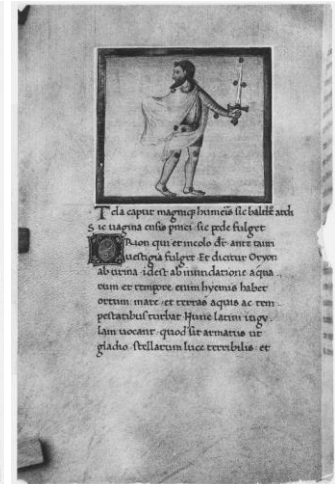 Tela caput magnicp humeris sic balteꝰ
Sic uagina ensis pnici sic pede fulget
ORion qui et incolo dr. ante tauri
uestigia fulget. Et dicitur Oryon
ab urina. idest ab inundatione aqua
rum et tempore enim hyemis habet
ortum. mare. et terras aquis ac tem
pestatibus turbat. Hunc latini iugy
lam uocant. quod sit armatus ut
gladio. stellarum luce terribilis. et